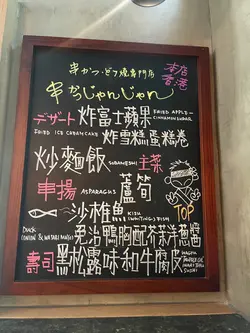 串かつ・どて焼専門店
本店
香港
串かつじゃんじゃん
デザート 炸富士蘋果 FRIED APPLE-
CINNAMON SUGAR
FRIED ICE CREAM CAKE 炸雪糕蛋糕卷
炒麵飯 SOBAMESHI 主菜
串揚 ASPARAGUS 蘆筍
沙稚魚 KISU
(WHITING) FISH
TOP
DUCK
(ONION & WASABI MAYO) 免治鴨胸配芥菜洋蔥醬
壽司 黑松露味和牛腐皮 WAGYU
SUSHI